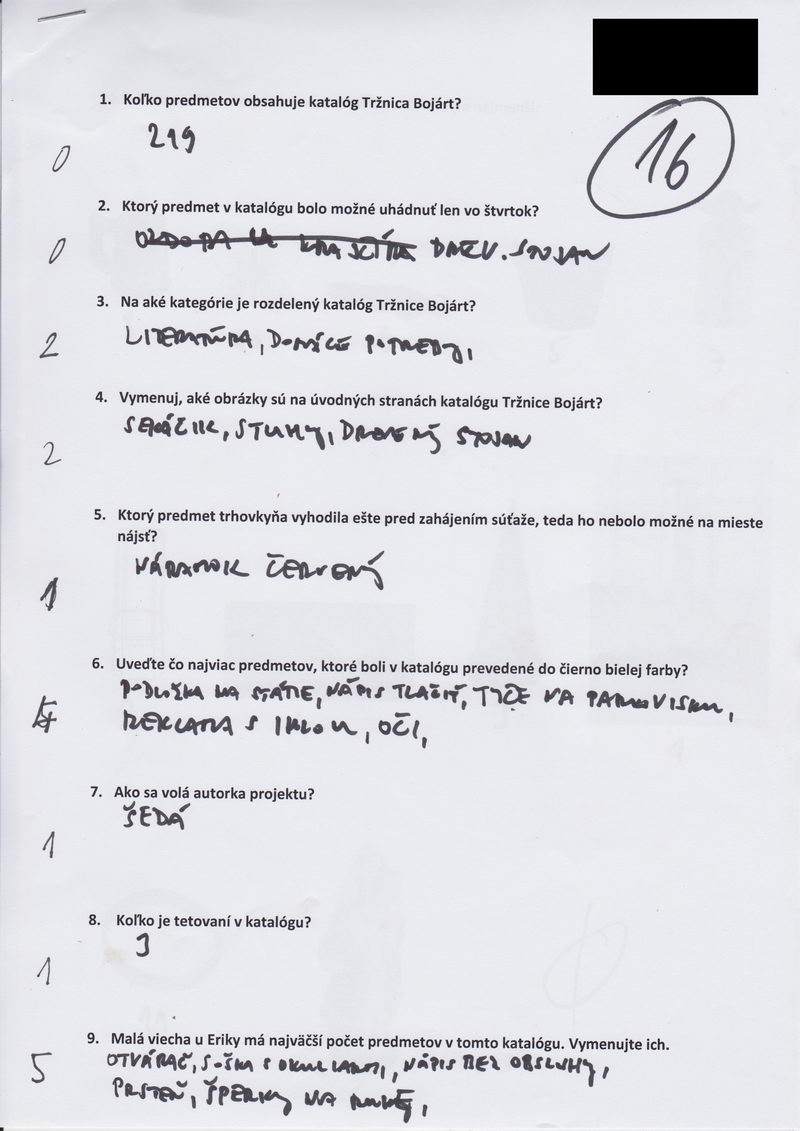 1. Koľko predmetov obsahuje katalóg Tržnica Bojárt?
219
0
16
2. Ktorý predmet v katalógu bolo možné uhádnuť len vo štvrtok?
DREV. STOJAN
0
3. Na aké kategórie je rozdelený katalóg Tržnice Bojárt?
LITERATÚRA, DOMÁCE POTREBY,
2
4. Vymenuj, aké obrázky sú na úvodných stranách katalógu Tržnice Bojárt?
SEKÁČIK, STUHY, DREVENÝ STOJAN
2
5. Ktorý predmet trhovkyňa vyhodila ešte pred zahájením súťaže, teda ho nebolo možné na mieste
nájsť?
NÁRAMOK ČERVENÝ
1
6. Uveďte čo najviac predmetov, ktoré boli v katalógu prevedené do čierno bielej farby?
PODLOŽKA NA STÁTIE, NÁPIS TLAČIŤ, TYČE NA PARKOVISKU,
REKLAMA S IHLOU, OČI,
7. Ako sa volá autorka projektu?
ŠEDÁ
1
8. Koľko je tetovaní v katalógu?
3
1
9. Malá viecha u Eriky má najväčší počet predmetov v tomto katalógu. Vymenujte ich.
OTVÁRAČ, SOŠKA S OKULIARMI, NÁPIS BEZ OBSLUHY,
PRSTEŇ, ŠPERKY NA RUKE,
5